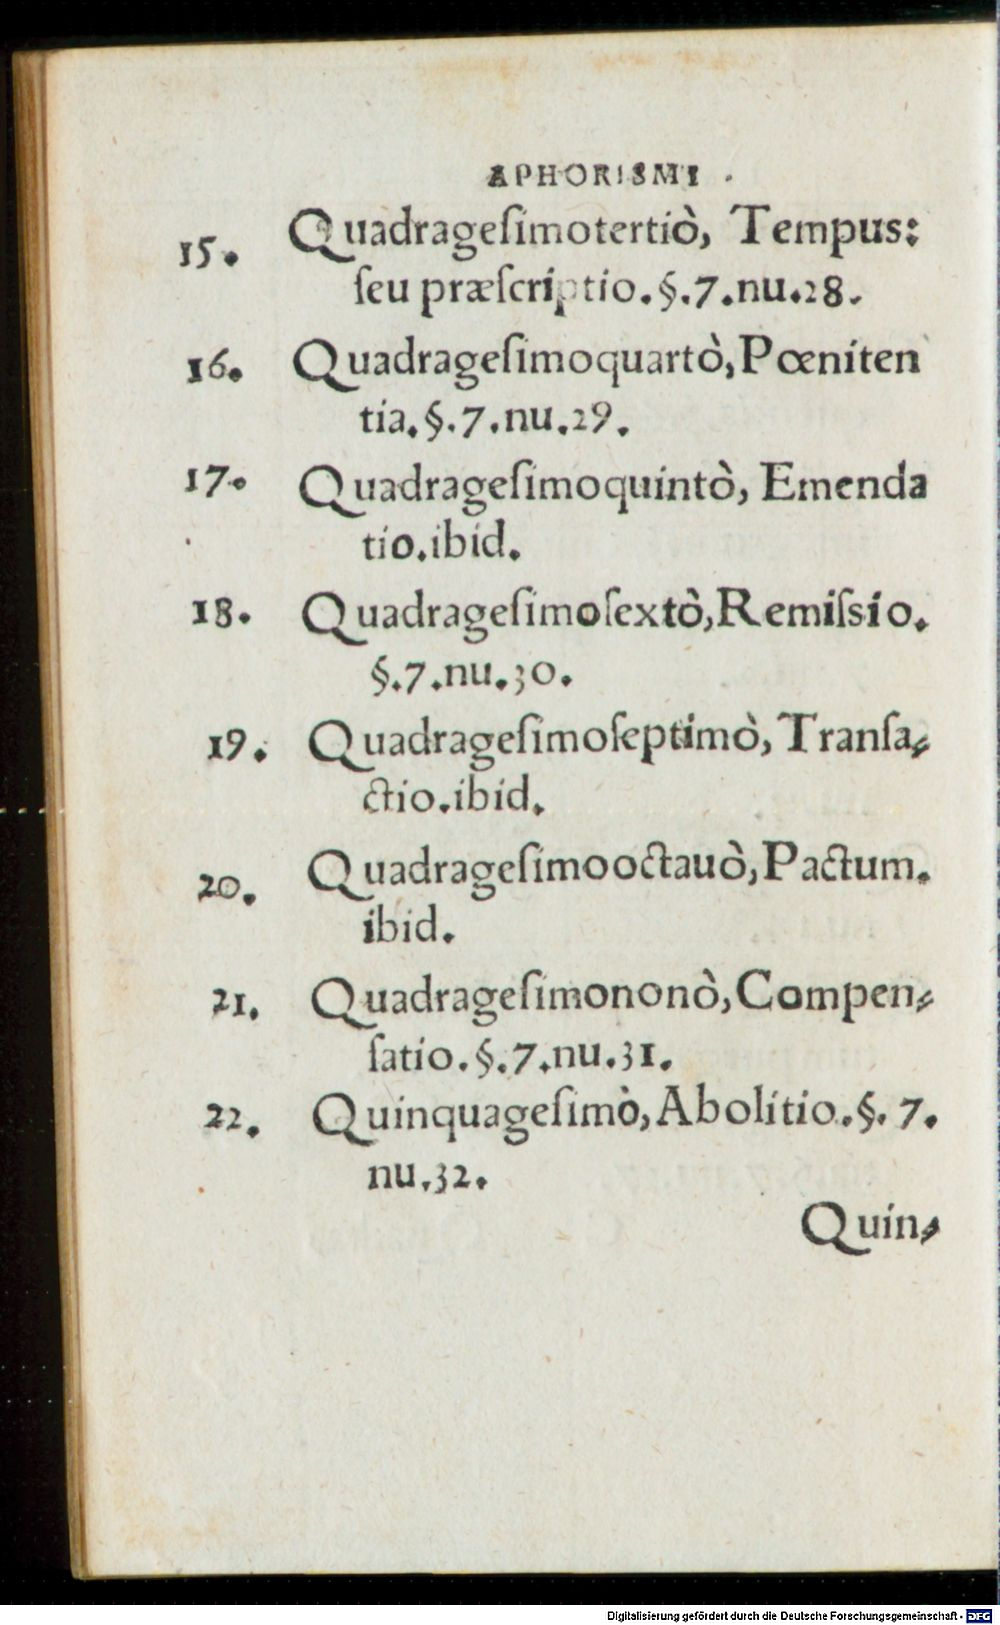 APHORISMI .
15. Quadrageſimotertiò, Tempus:
ſeu præſcriptio.§.7.nu.28.
16. Quadrageſimoquartò, Pœniten
tia.§.7.nu.29.
17. Quadrageſimoquintò, Emenda
tio.ibid.
18. Quadrageſimoſextò, Remiſsio.
§.7.nu.30.
19. Quadrageſimoſeptimò, Tranſa⸗
ctio.ibid.
20. Quadrageſimooctauò, Pactum.
ibid.
21. Quadrageſimononò, Compen⸗
ſatio.§.7.nu.31.
22. Quinquageſimò, Abolitio.§.7.
nu.32.
Quin⸗
Digitalisierung gefördert durch die Deutsche Forschungsgemeinschaft - DFG